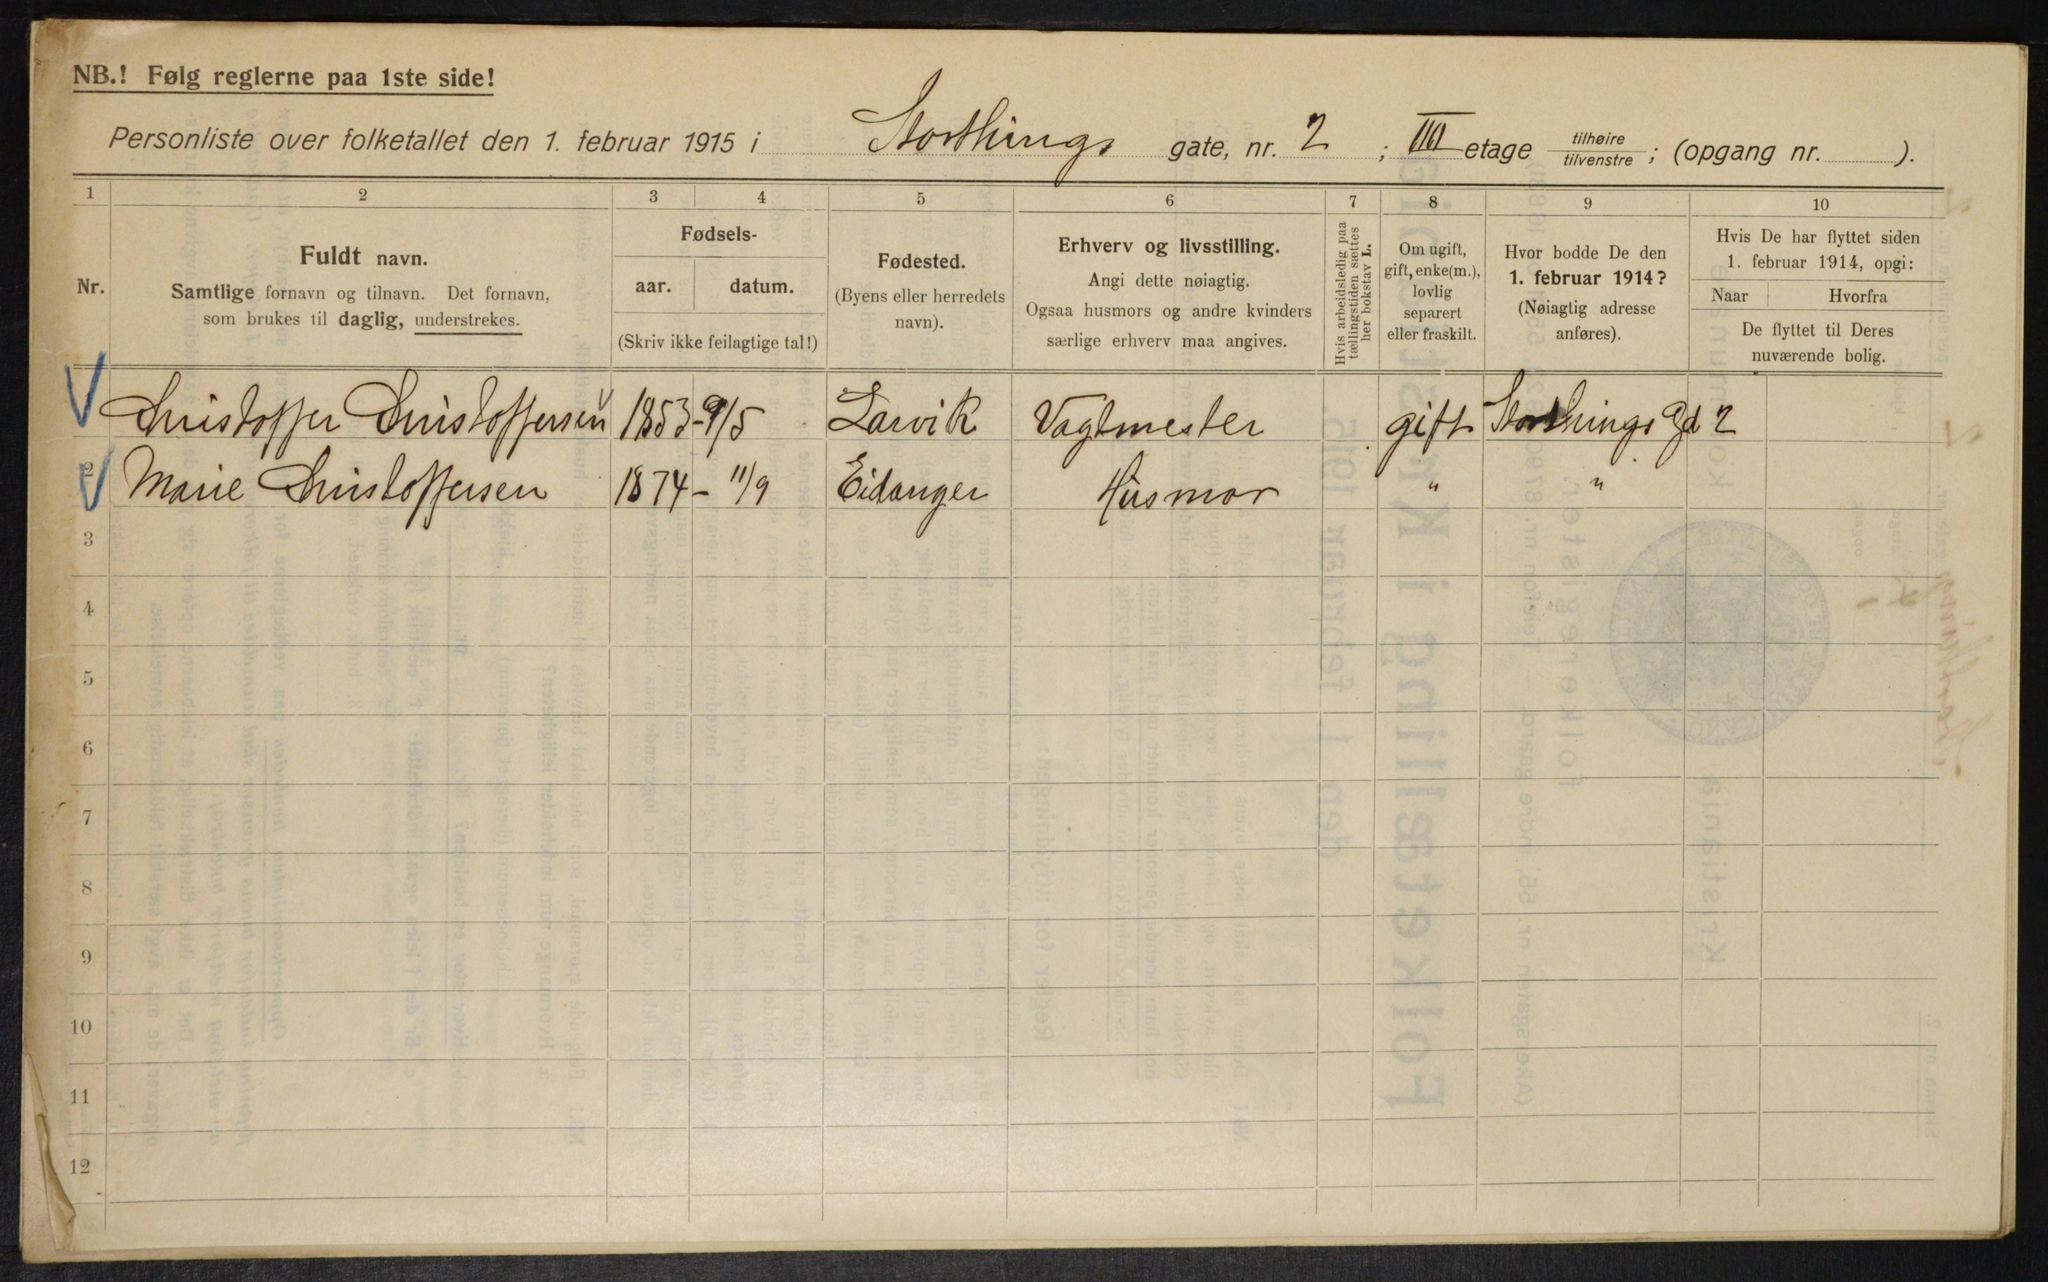 NB.! Følg reglerne paa 1ste side!
Personliste over folketallet den 1. februar 1915 i Storthings gate, nr. 2 ; III etage tilhøire tilvenstre ; (opgang nr. ).
1 2 3 4 5 6 7 8 9 10
Nr.
Fuldt navn.
Samtlige fornavn og tilnavn. Det fornavn,
som brukes til daglig, understrekes.
Fødsels-
aar. datum.
(Skriv ikke feilagtige tal!)
Fødested.
(Byens eller herredets
navn).
Erhverv og livsstilling.
Angi dette nøiagtig.
Ogsaa husmors og andre kvinders
særlige erhverv maa angives.
Hvis arbeidsledig paa
tællingstiden sættes
her bokstav L.
Om ugift,
gift, enke(m.),
lovlig
separert
eller fraskilt.
Hvor bodde De den
1. februar 1914?
(Nøiagtig adresse
anføres).
Hvis De har flyttet siden
1. februar 1914, opgi:
Naar Hvorfra
De flyttet til Deres
nuværende bolig.
Christoffer Christoffersen 1853 - 9/5 Larvik Vagtmester gift Storthings Gd 2
2 Marie Christoffersen 1874 - 11/9 Eidanger Husmor " "
3
4
5
6
7
8
9
10
11
12